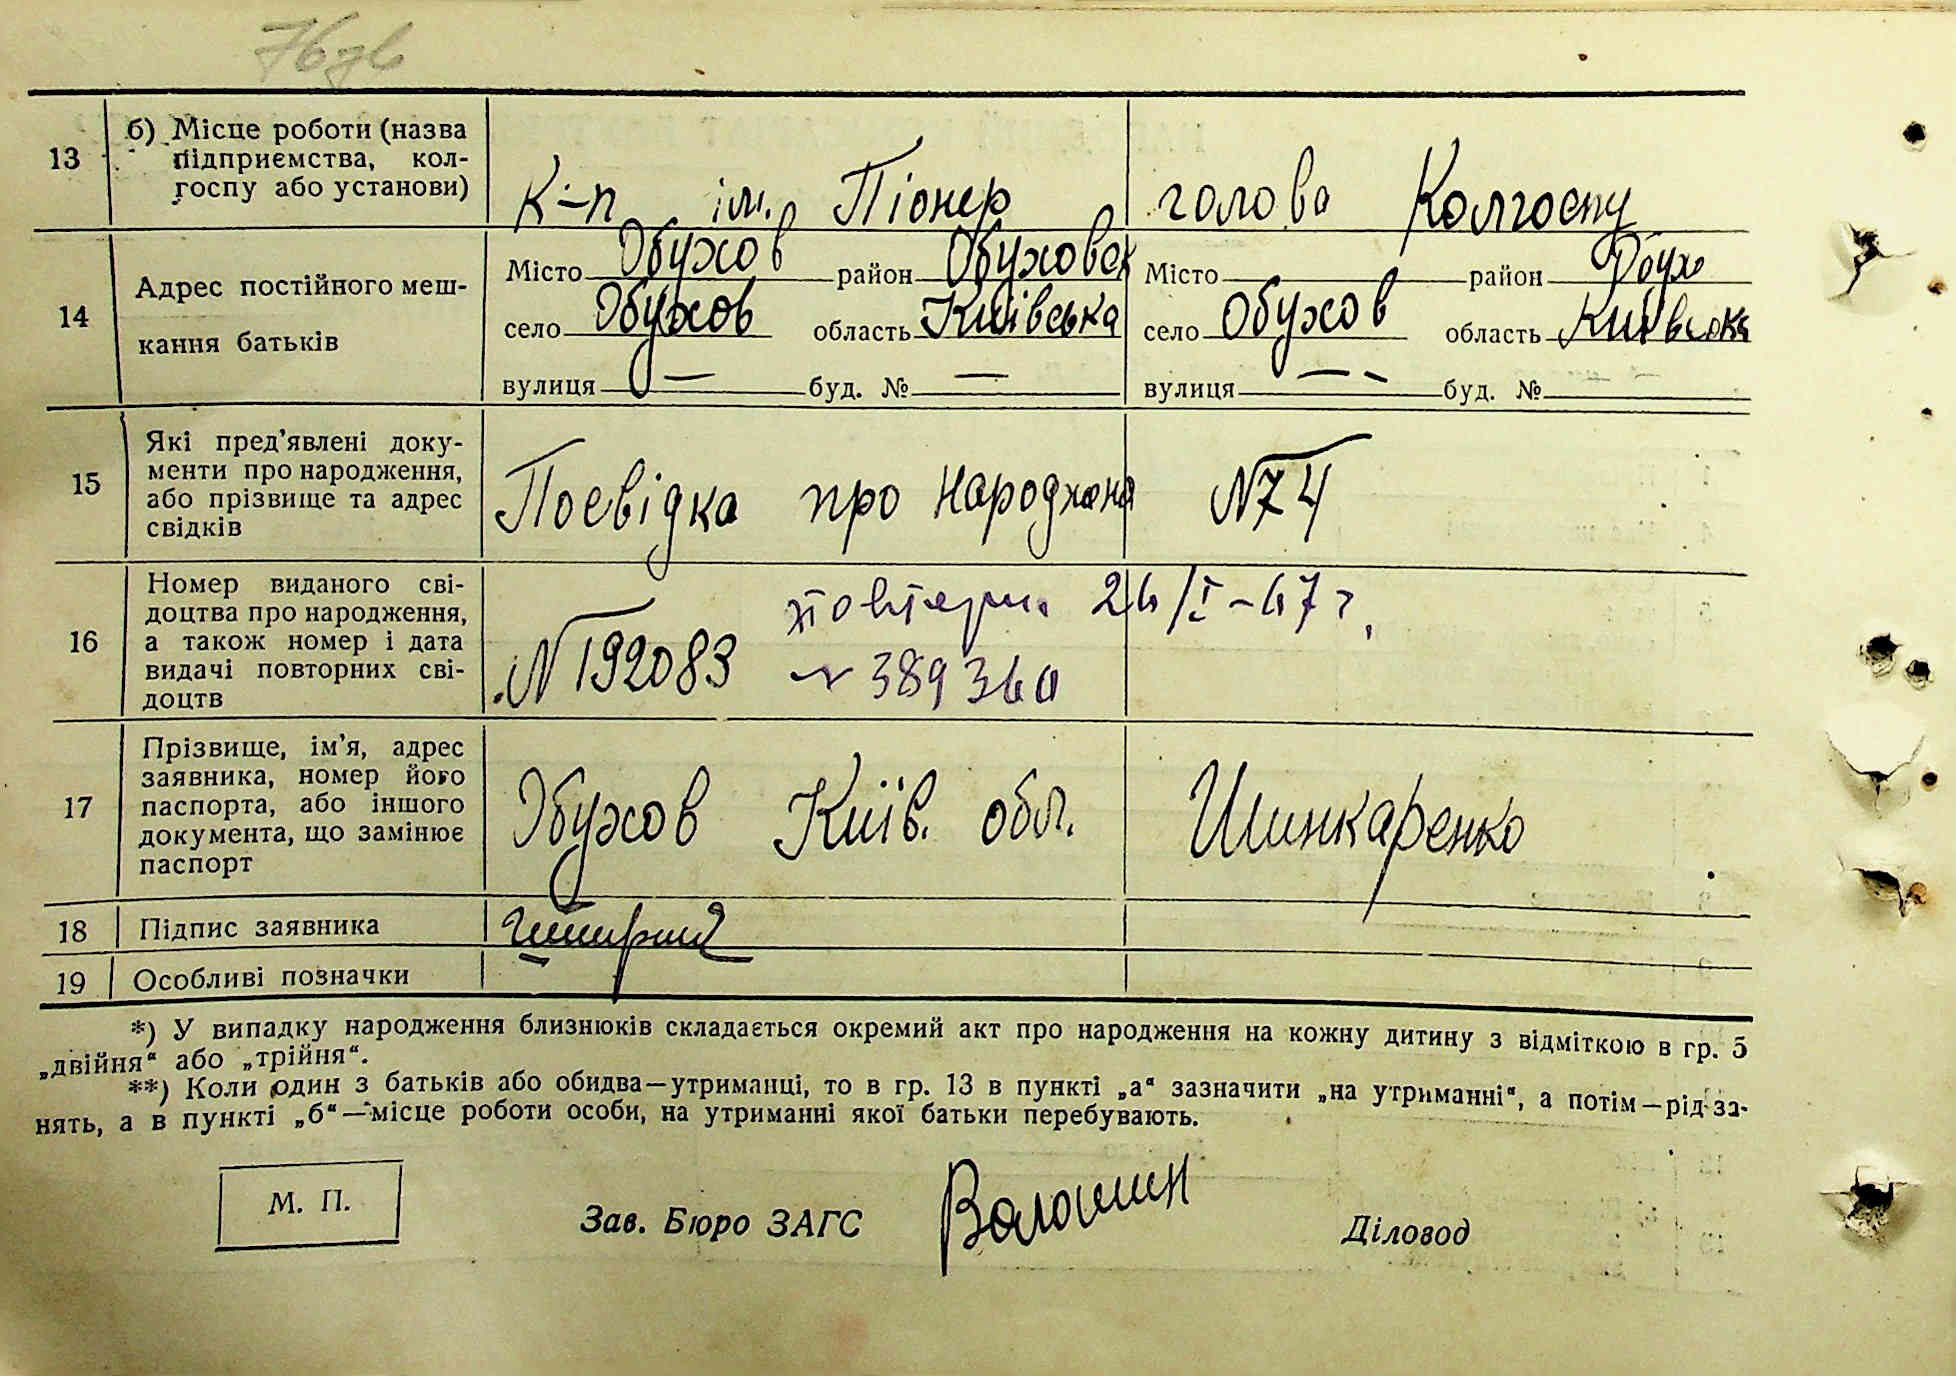 76
13
б) Місце роботи (назва
підприємства, кол-
госпу або установи)
К-п ім. Піонер
голова Колгоспу
14
Адрес постійного меш-
кання батьків
Місто Обухов район Обуховск
село Обухов область Київська
вулиця — буд. № —
Місто район Обух
село Обухов область Київська
вулиця — - буд. №
15
Які пред'явлені доку-
менти про народження,
або прізвище та адрес
свідків
Посвідка про народжена №74
16
Номер виданого сві-
доцтва про народження,
а також номер і дата
видачі повторних сві-
доцтв
№192083
повторн. 26/I-67 г.
N 389360
17
Прізвище, ім'я, адрес
заявника, номер його
паспорта, або іншого
документа, що замінює
паспорт
Обухов Київ. обл.
Шинкаренко
18
Підпис заявника
19
Особливі позначки
*) У випадку народження близнюків складається окремий акт про народження на кожну дитину з відміткою в гр. 5
„двійня“ або „трійня“.
**) Коли один з батьків або обидва—утриманці, то в гр. 13 в пункті „а“ зазначити „на утриманні“, а потім—рід за-
нять, а в пункті „б“—місце роботи особи, на утриманні якої батьки перебувають.
М. П.
Зав. Бюро ЗАГС Волошин
Діловод